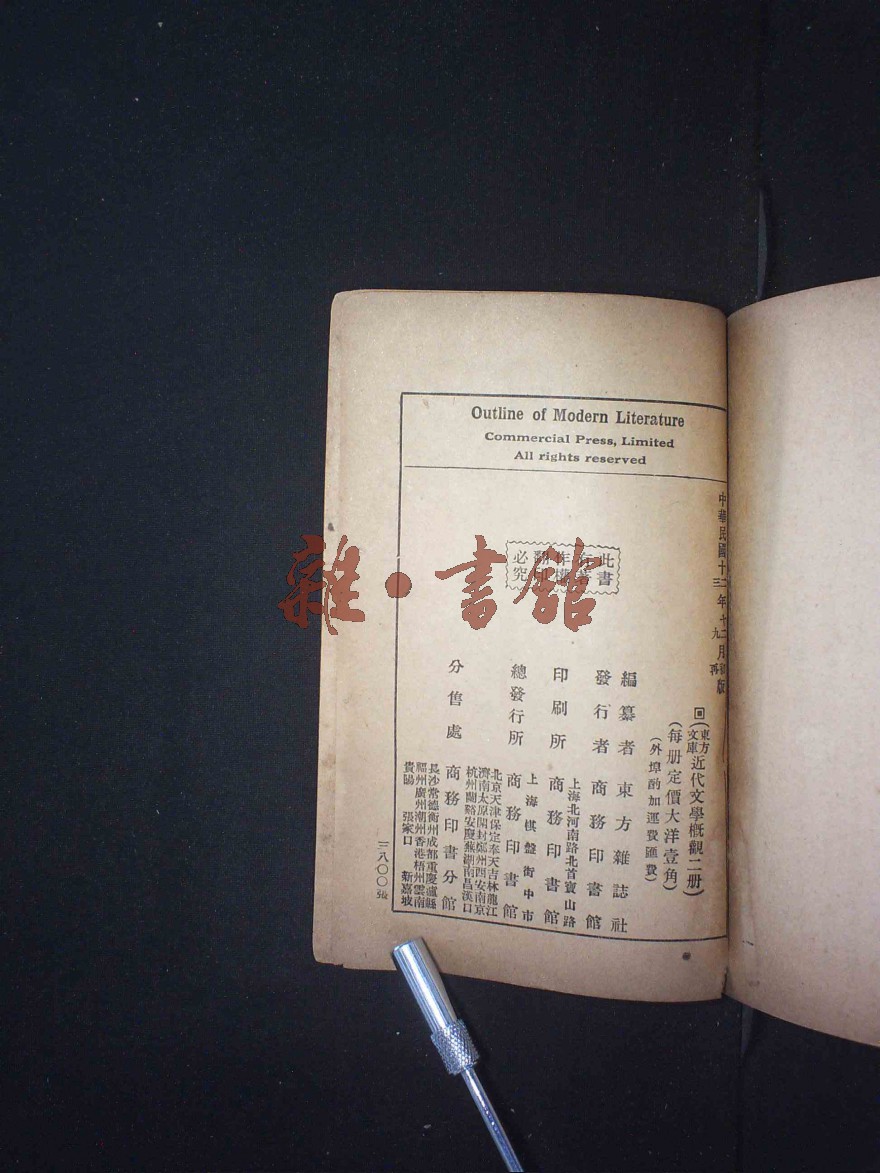 Outline of Modern Literature
Commercial Press, Limited
All rights reserved
中華民國十二年十二月初版
三 九 再
(東方文庫)近代文學概觀二册)
(每册定價大洋壹角)
(外埠酌加運費匯費)
此書
有著
作權
翻印
必究
編纂者 東方雜誌社
發行者 商務印書館
上海北河南路北首寶山路
印刷所 商務印書館
上海棋盤街中市
總發行所 商務印書館
北京天津保定奉天吉林龍江
濟南太原開封鄭州西安南京
杭州蘭谿安慶蕪湖南昌漢口
分售處 商務印書分館
長沙常德衡州成都重慶瀘縣
福州廣州潮州香港梧州雲南
貴陽 張家口 新嘉坡
三八〇〇張
雜·書館